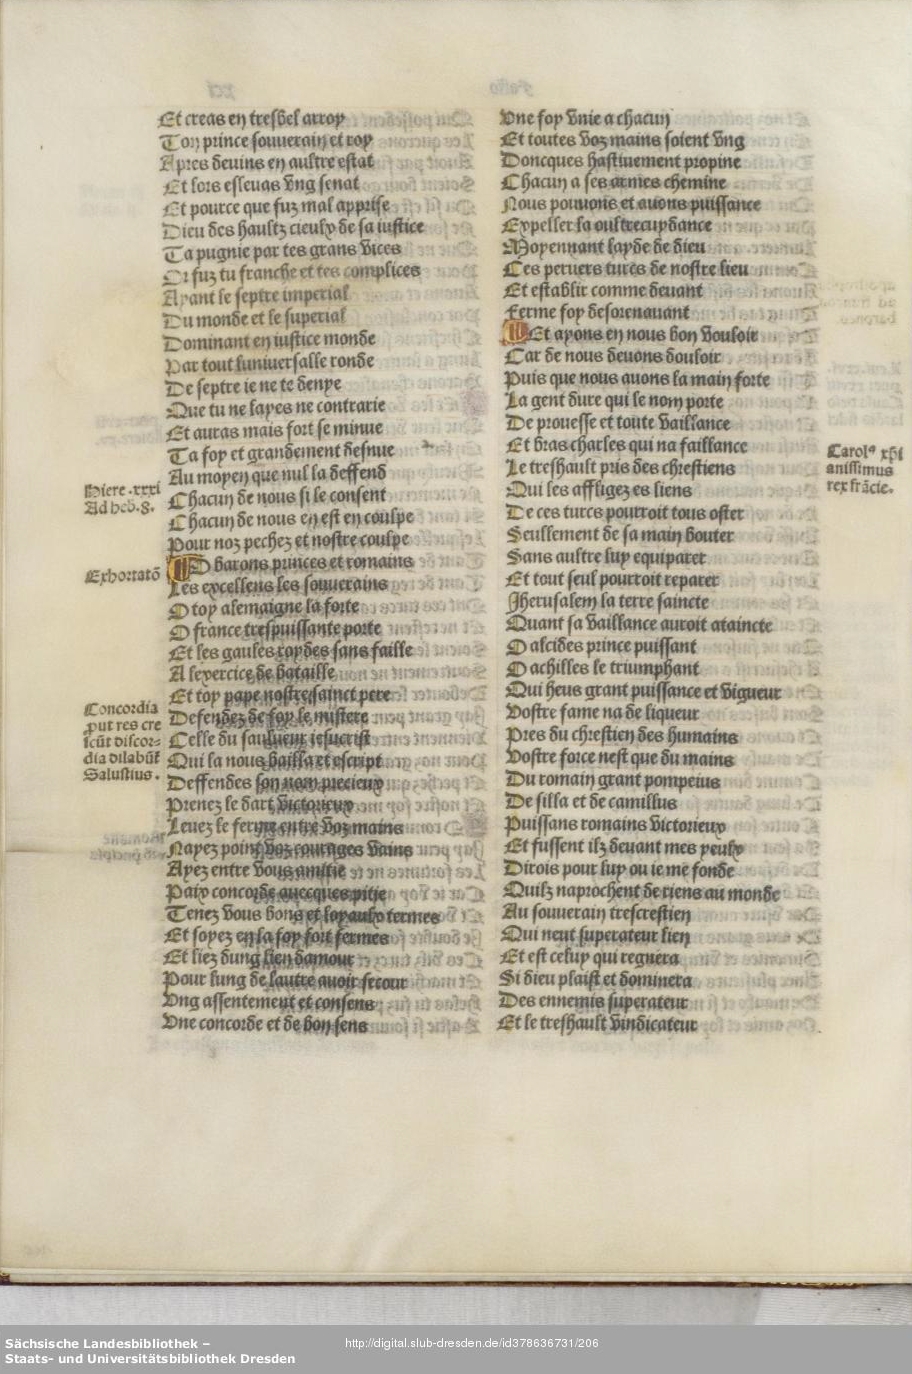 Et creas en tresbel arroy
Ton prince souuerain et roy
Apres deuins en aultre estat
Et lors esleuas vng senat
Et pource que fuz mal apprise
Dieu des haultz cieulx de sa iustice
Ta pugnie par tes grans vices
Or fuz tu franche et tes complices
Ayant le septre imperial
Du monde et le superial
Dominant en iustice monde
Par tout luniuersalle ronde
De septre ie ne te denye
Que tu ne layes ne contrarie
Et auras mais fort se minue
Ta foy et grandement desnue
Au moyen que nul la deffend
Chacun de nous si le consent
Chacun de nous en est en coulpe
Pour noz pechez et nostre coulpe
O barons princes et romains
Les excellens les souuerains
O toy alemaigne la forte
O france trespuissante porte
Et les gaules roydes sans faille
A lexercice de bataille
Et toy pape nostre sainct pere
Defendez de foy le mistere
Celle du saulueur iesucrist
Qui la nous bailla et escript
Deffendes son nom precieux
Prenez le dart victorieux
Leuez le ferme entre voz mains
Nayez point voz courages vains
Ayez entre vous amitie
Paix concorde auecques pitie
Tenez vous bons et loyaulx termes
Et soyez en la foy fort fermes
Et liez dung lien damour
Pour lung de lautre auoir secour
Vng assentement et consens
Vne concorde et de bon sens
Hiere .xxxi
Ad heb. 8.
Exhortatō
Concordia
ꝓut res cre
scūt discor-
dia dilabūt
Salustius.
Vne foy vnie a chacun
Et toutes voz mains soient vng
Doncques hastiuement propine
Chacun a ses armes chemine
Nous pouuons et auons puissance
Expeller la oultrecuydance
Moyennant layde de dieu
Ces peruers turcs de nostre lieu
Et establir comme deuant
Ferme foy desorenauant
Et ayons en nous bon vouloir
Car de nous deuons douloir
Puis que nous auons la main forte
La gent dure qui le nom porte
De prouesse et toute vaillance
Et bras charles qui na faillance
Le treshault pris des chrestiens
Qui les affligez es liens
De ces turcs pourroit tous oster
Seullement de sa main bouter
Sans aultre luy equiparer
Et tout seul pourroit reparer
Jherusalem la terre saincte
Quant sa vaillance auroit ataincte
O alcides prince puissant
O achilles le triumphant
Qui heus grant puissance et vigueur
Vostre fame na de liqueur
Pres du chrestien des humains
Vostre force nest que du mains
Du romain grant pompeius
De silla et de camillus
Puissans romains victorieux
Et fussent ilz deuant mes yeulx
Dirois pour luy ou ie me fonde
Quilz naprochent de riens au monde
Au souuerain trescrestien
Qui neut superateur lien
Et est celuy qui regnera
Si dieu plaist et dominera
Des ennemis superateur
Et le treshault vindicateur
Carolꝰ xp̄i
anissimus
rex frācie.
Sächsische Landesbibliothek –
Staats- und Universitätsbibliothek Dresden
http://digital.slub-dresden.de/id378636731/206